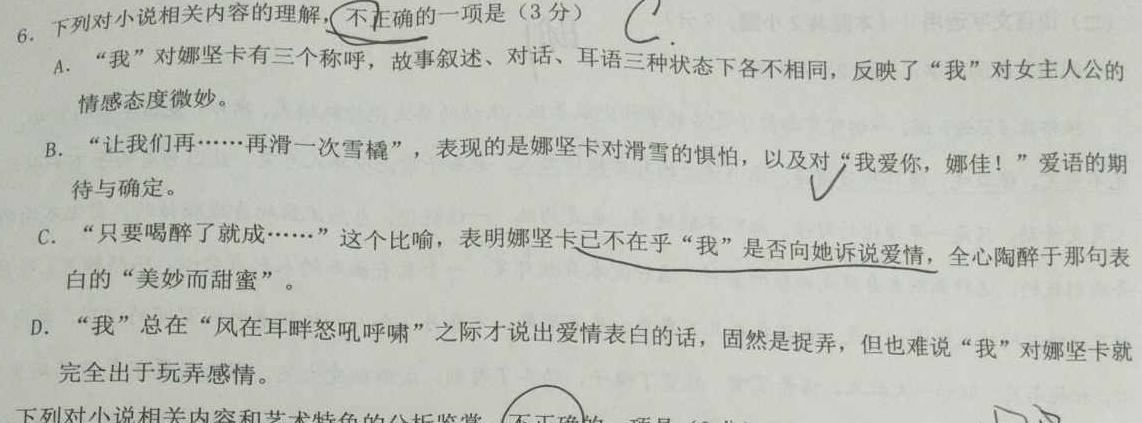 6. 下列对小说相关内容的理解，不正确的一项是（3分） C.
A. “我”对娜坚卡有三个称呼，故事叙述、对话、耳语三种状态下各不相同，反映了“我”对女主人公的
情感态度微妙。
B. “让我们再……再滑一次雪橇”，表现的是娜坚卡对滑雪的惧怕，以及对“我爱你，娜佳！”爱语的期
待与确定。
C. “只要喝醉了就成……”这个比喻，表明娜坚卡已不在乎“我”是否向她诉说爱情，全心陶醉于那句表
白的“美妙而甜蜜”。
D. “我”总在“风在耳畔怒吼呼啸”之际才说出爱情表白的话，固然是捉弄，但也难说“我”对娜坚卡就
完全出于玩弄感情。
下列对小说相关内容和艺术特色的分析鉴赏，不正确的一项是